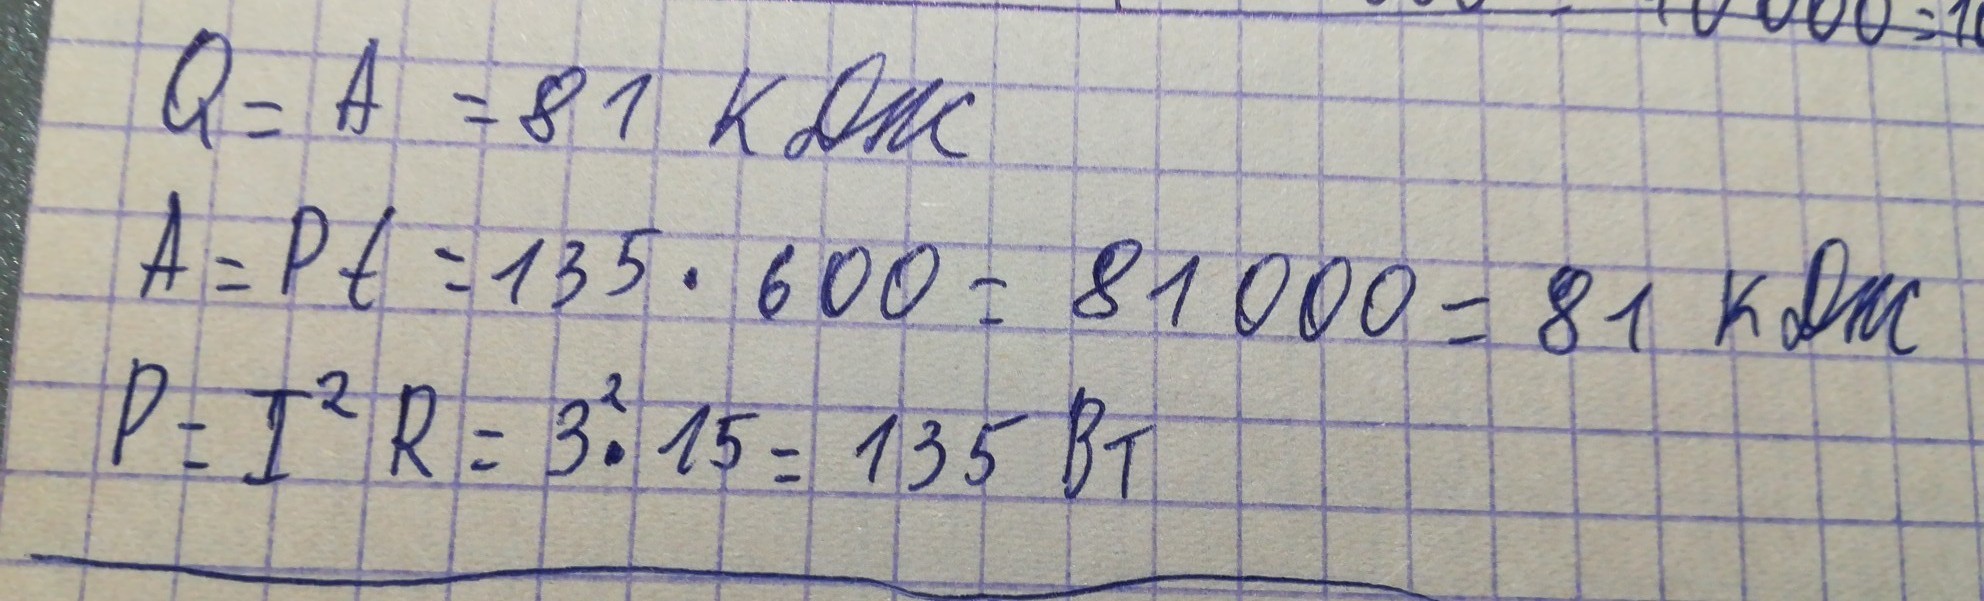 000 = 10 000 = 10
Q = A = 81 кДж
A = Pt = 135 · 600 = 81 000 = 81 кДж
P = I² R = 3² · 15 = 135 Вт